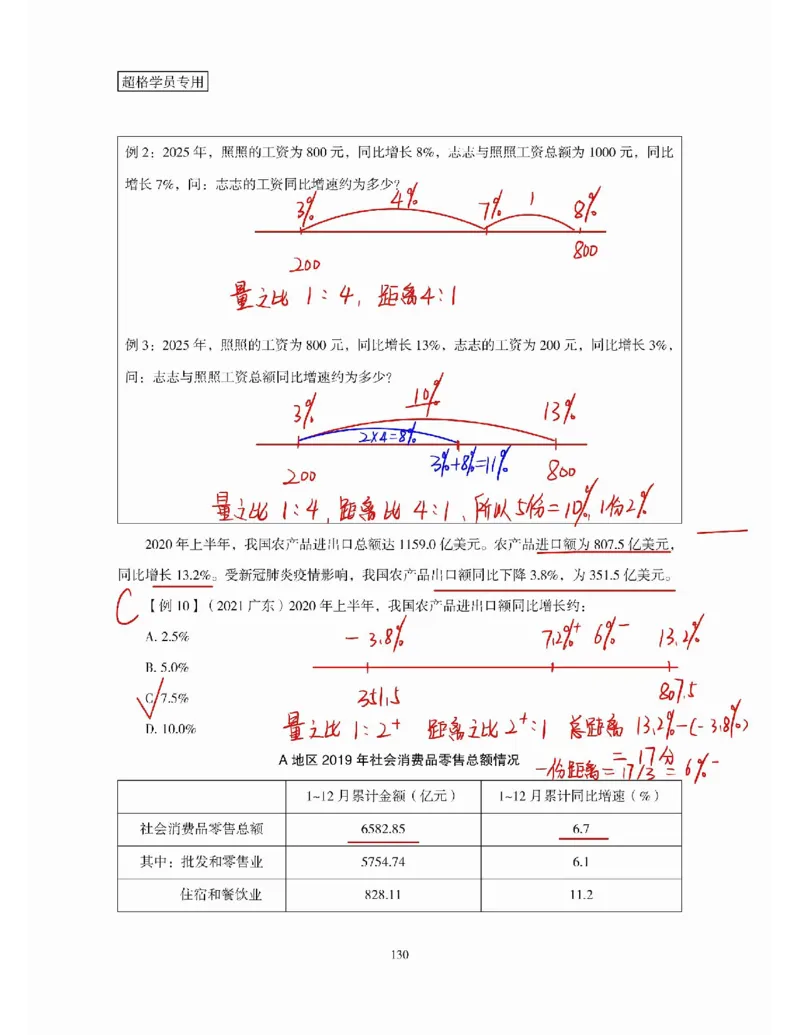 超格学员专用
例 2：2025 年，照照的工资为 800 元，同比增长 8%，志志与照照工资总额为 1000 元，同比
增长 7%，问：志志的工资同比增速约为多少？
3% 4% 7% 1 8%
200 800
量之比 1：4，距离4：1
例 3：2025 年，照照的工资为 800 元，同比增长 13%，志志的工资为 200 元，同比增长 3%，
问：志志与照照工资总额同比增速约为多少？
3% 10% 13%
2×4=8%
3%+8%=11%
200 800
量之比 1：4，距离比 4：1、所以5份=10%，1份2%
2020 年上半年，我国农产品进出口总额达 1159.0 亿美元。农产品进口额为 807.5 亿美元，
同比增长 13.2%。受新冠肺炎疫情影响，我国农产品出口额同比下降 3.8%，为 351.5 亿美元。
C 【例 10】（2021 广东）2020 年上半年，我国农产品进出口额同比增长约：
A. 2.5%
-3.8% 7.2%+ 6%- 13.2%
B. 5.0%
C. 7.5%
351.5 807.5
D. 10.0%
量之比 1：2+ 距离之比 2+：1 总距离 13.2%-(-3.8%)
=17分
A 地区 2019 年社会消费品零售总额情况
一份距离=17/3=6%-
1~12 月累计金额（亿元） 1~12 月累计同比增速（%）
社会消费品零售总额 6582.85 6.7
其中：批发和零售业 5754.74 6.1
住宿和餐饮业 828.11 11.2
130